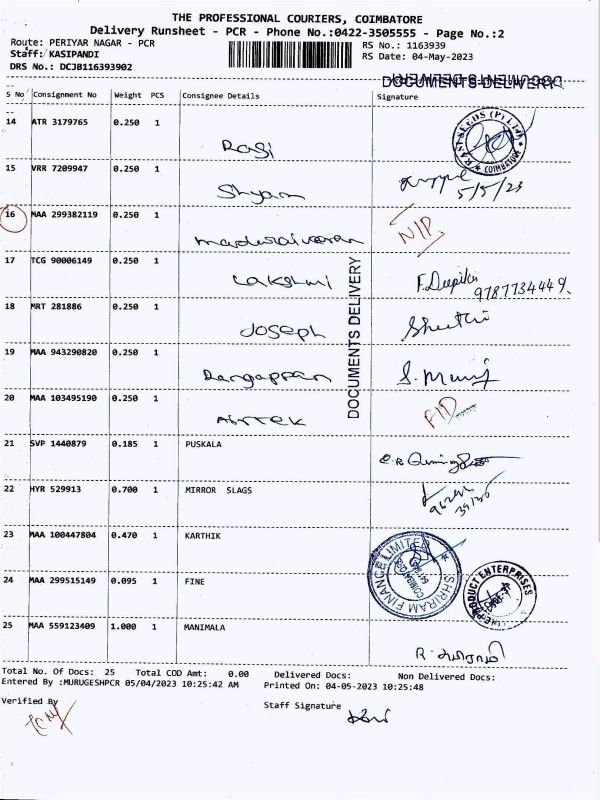 THE PROFESSIONAL COURIERS, COIMBATORE
Delivery Runsheet - PCR - Phone No.:0422-3505555 - Page No.:2
Route: PERIYAR NAGAR - PCR RS No.: 1163939
Staff: KASIPANDI RS Date: 04-May-2023
DRS No.: DCJB116393902
DOCUMENTS DELIVERY
S No Consignment No Weight PCS Consignee Details Signature
14 ATR 3179765 0.250 1 Rasi
RASI SEEDS (P) LTD COIMBATORE
15 VRR 7209947 0.250 1 Shyam
5/5/23
16 MAA 299382119 0.250 1 maduraiveeran
17 TCG 90006149 0.250 1 Lakshmi F.Deepika
9787734449.
18 MRT 281886 0.250 1 Joseph
19 MAA 943290820 0.250 1 Rangappan
20 MAA 103495190 0.250 1 Airtek
DOCUMENTS DELIVERY
21 SVP 1440879 0.185 1 PUSKALA
22 HYR 529913 0.700 1 MIRROR SLAGS
23 MAA 100447804 0.470 1 KARTHIK
SHRIRAM FINANCE LIMITED
24 MAA 299515149 0.095 1 FINE
ENTERPRISES
25 MAA 559123409 1.000 1 MANIMALA
Total No. Of Docs: 25 Total COD Amt: 0.00 Delivered Docs: Non Delivered Docs:
Entered By :MURUGESHPCR 05/04/2023 10:25:42 AM Printed On: 04-05-2023 10:25:48
Verified By Staff Signature